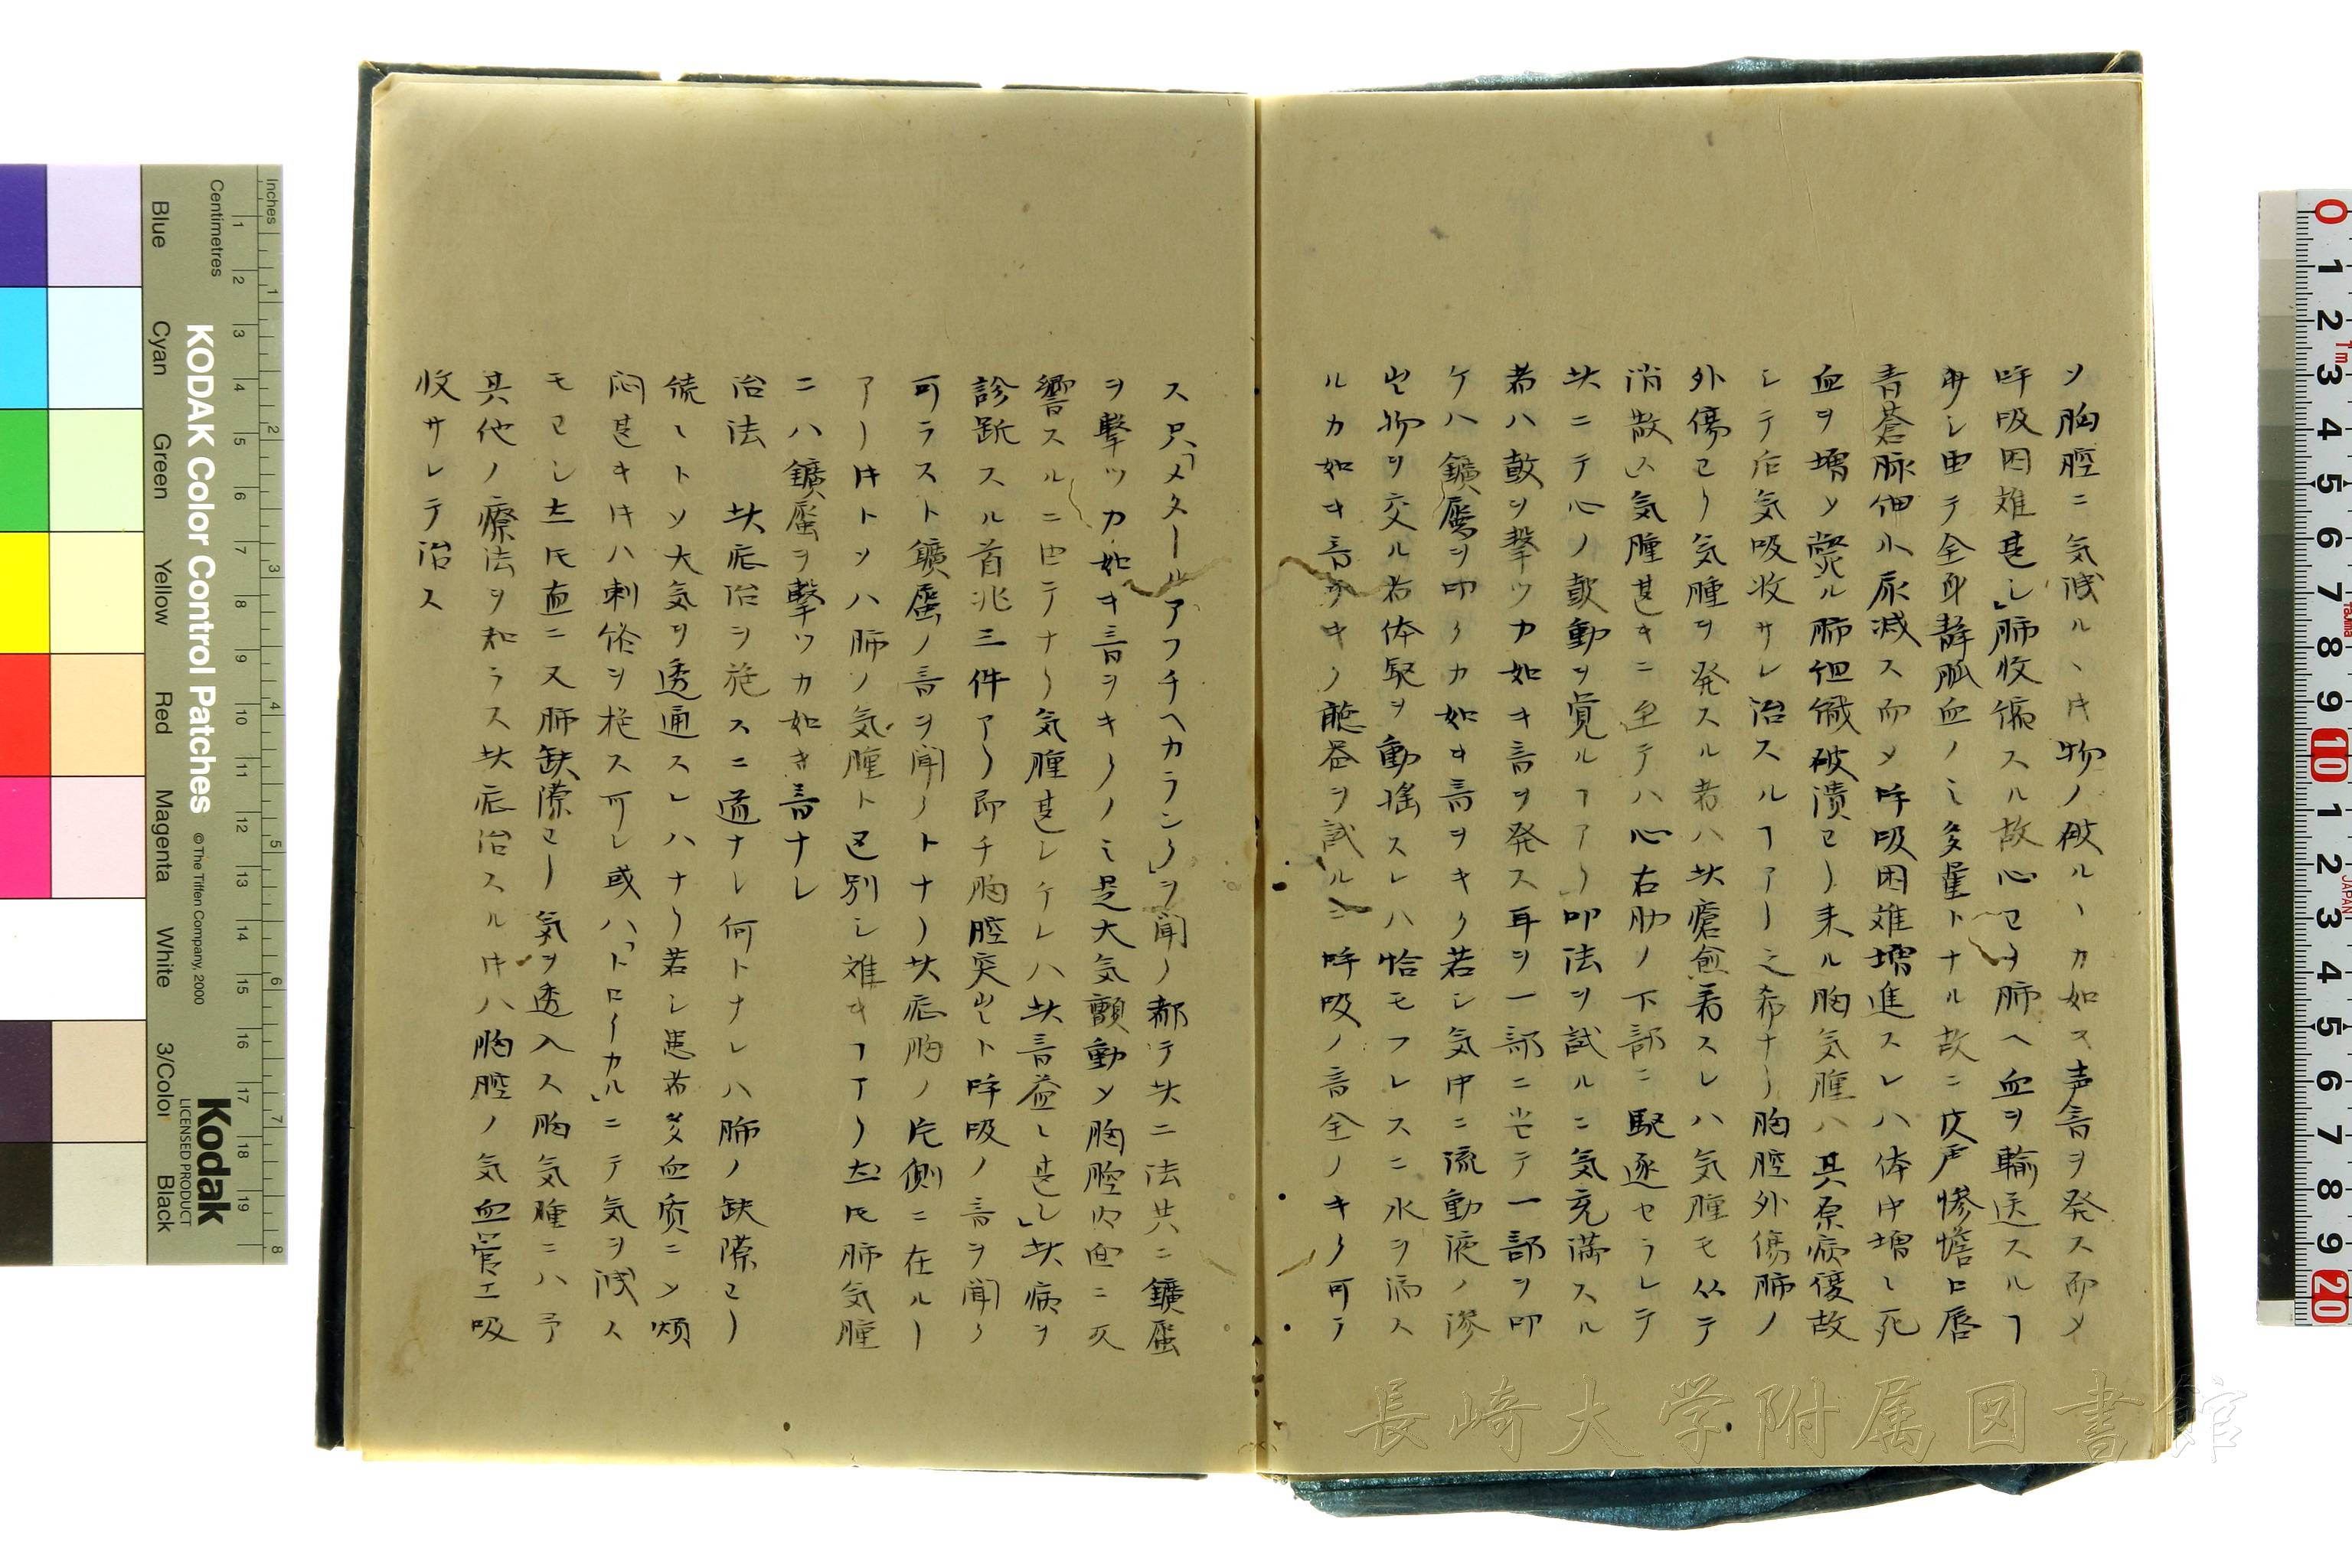 ソ胸腔ニ気減ルヽ片物ノ破ルヽカ如ス声音ヲ発ス而メ
呼吸困難甚シ」肺收縮スル故心ヨリ肺ヘ血ヲ輸送スルヿ
ナシ由テ全身静脈血ノミ多量トナル故ニ皮声惨憺口唇
青蒼脉細小尿減ス而メ呼吸困難増進スレハ体中増々死
血ヲ増ソ斃ル肺組織破潰ヨリ来ル胸気腫ハ其原病優故
シテ后気吸收サレ治スルヿアリ之希ナリ胸腔外傷肺ノ
外傷ヨリ気腫ヲ発スル者ハ其瘡愈着スレハ気腫モ从テ
消散ス気腫甚キニ至テハ心右肋ノ下部ニ駆逐セラレテ
其ニテ心ノ鼓動ヲ覚ルヿアリ」叩法ヲ試ルニ気充満スル
者ハ鼓ヲ撃ツカ如キ音ヲ発ス耳ヲ一部ニ当テ一部ヲ叩
ケハ鑛層ヲ叩クカ如キ音ヲキク若シ気中ニ流動液ノ滲
出物ヲ交ル者体躯ヲ動揺スレハ恰モフレスニ水ヲ満ス
ルカ如キ音ヲキク聴器ヲ試ルニ呼吸ノ音全ノキク可ラ
ス只「メタールアフチヘカランク」ヲ聞ノ都テ其二法共ニ鑛層
ヲ撃ツカ如キ音ヲキクノミ是大気顫動メ胸腔内面ニ反
響スルニ由テナリ気腫甚シケレハ其音益々甚シ」其病ヲ
診断スル首兆三件アリ即チ胸腔突出ト呼吸ノ音ヲ聞ク
可ラスト鑛層ノ音ヲ聞クトナリ其症胸ノ片側ニ在ルヿ
アリ片トソハ肺ノ気腫ト区別シ難キヿアリ𪜈肺気腫
ニハ鑛層ヲ撃ツカ如き音ナレ
治法　其症治ヲ施スニ道ナレ何トナレハ肺ノ缺隙ヨリ
続々トソ大気ヲ透通スレハナリ若シ患者多血质ニメ煩
悶甚キ片ハ刺絡ヲ施ス可レ或ハ「トロイカル」ニテ気ヲ減ス
モヨシ𪜈直ニ又肺缺隙ヨリ気ヲ透入ス胸気腫ニハ予
其他ノ療法ヲ知ラス其症治スル片ハ胸腔ノ気血管エ吸
收サレテ治ス
KODAK Color Control Patches
© The Tiffen Company, 2000
Kodak
LICENSED PRODUCT
Inches
Centimetres
Blue
Cyan
Green
Yellow
Red
Magenta
White
3/Color
Black
長崎大学附属図書館